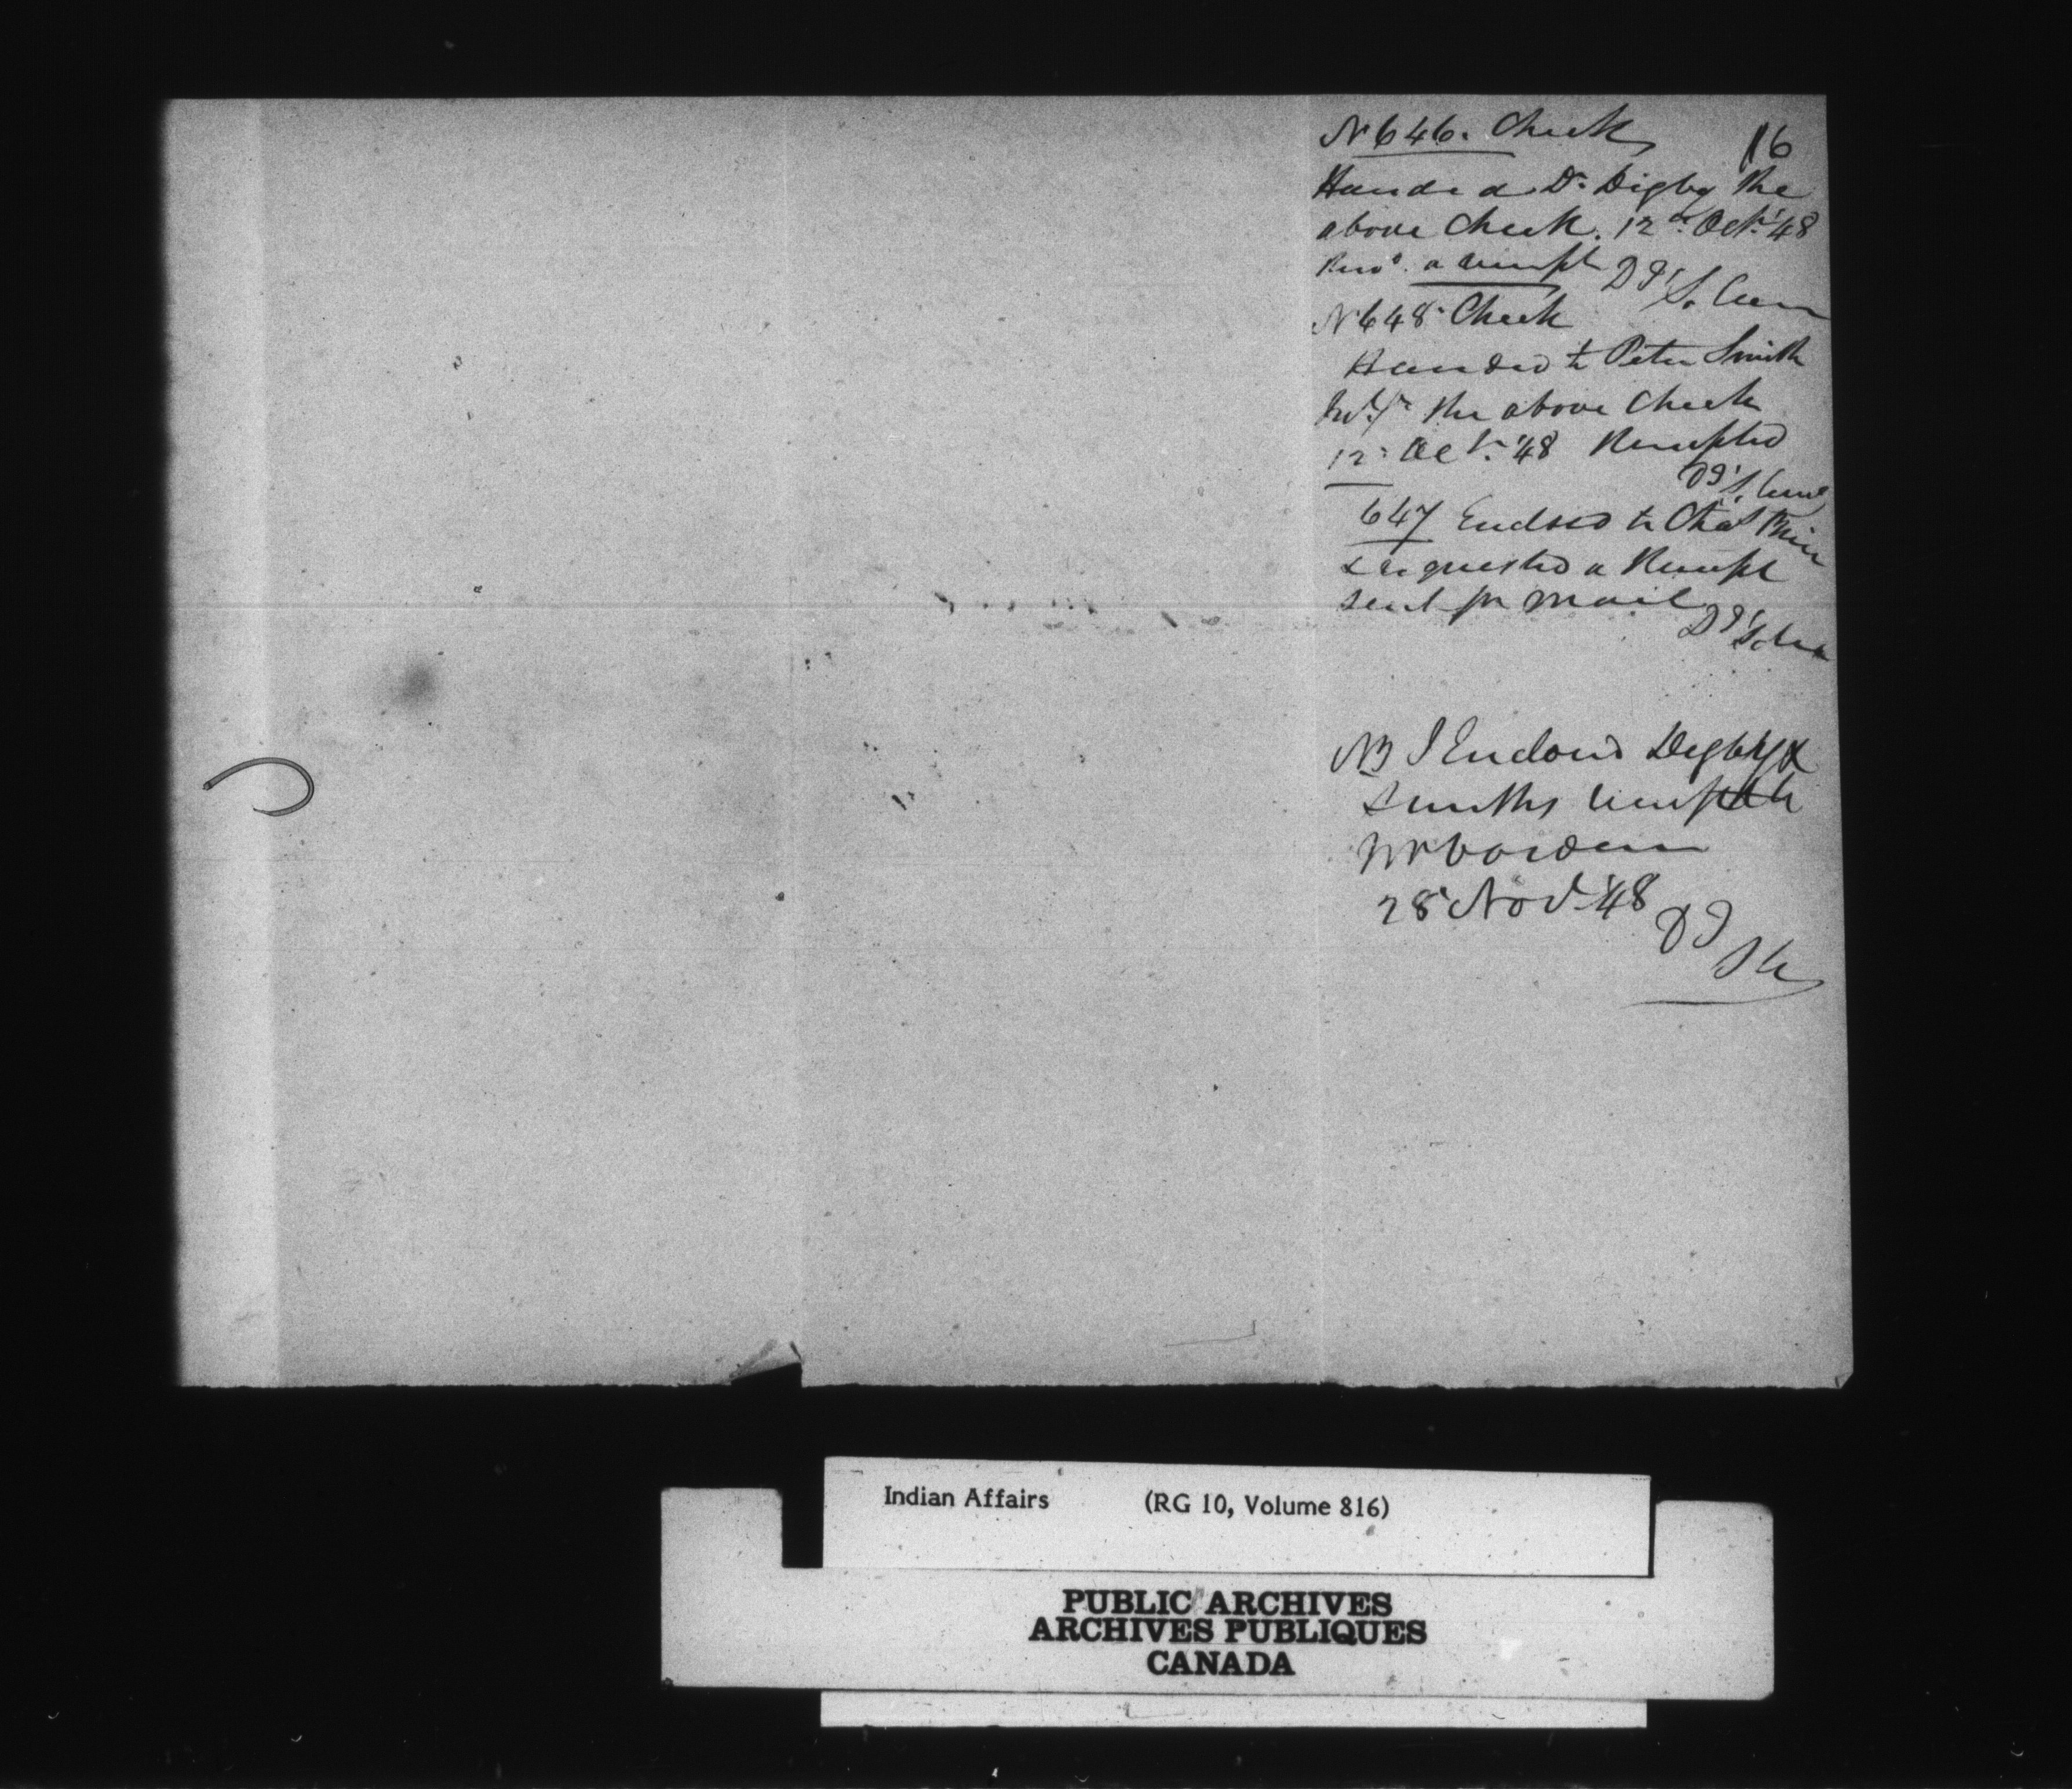 No 646. Check
16
Handed Dr Digby the
above Check. 12th Octr '48
Recd. a receipt
No 648 Check
Handed to Peter Smith
the above Check
12th Octr. '48 Receipted
647 Enclosed to Chas
& requested a Receipt
sent pr mail
NB I Enclosed Digby &
Smiths receipts
28 Novr '48
Indian Affairs (RG 10, Volume 816)
PUBLIC ARCHIVES
ARCHIVES PUBLIQUES
CANADA